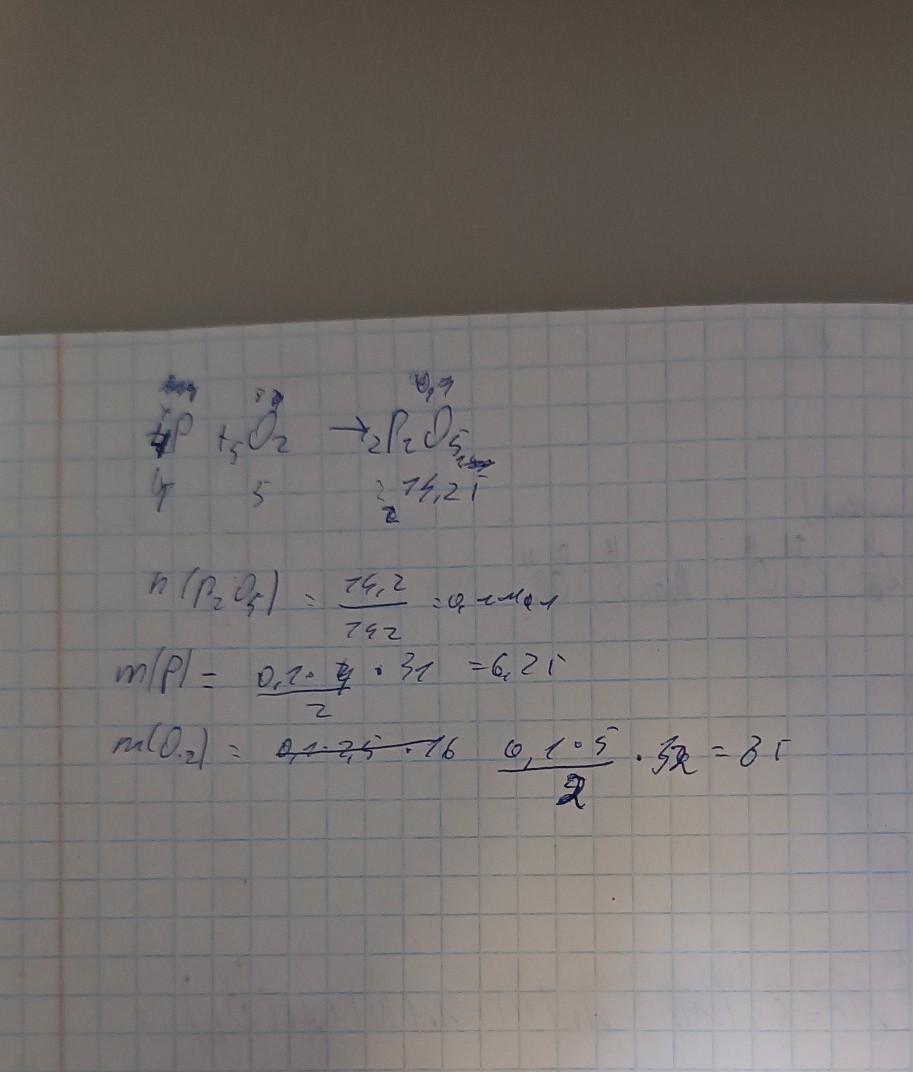 0,1
4P + 5O2 → 2P2O5
4 5 2 14,2г
n(P2O5) = 14,2/142 = 0,1 мол
m(P) = 0,1·4/2 · 31 = 6,2г
m(O2) = 0,1·2,5·16 0,1·5/2 · 32 = 8г